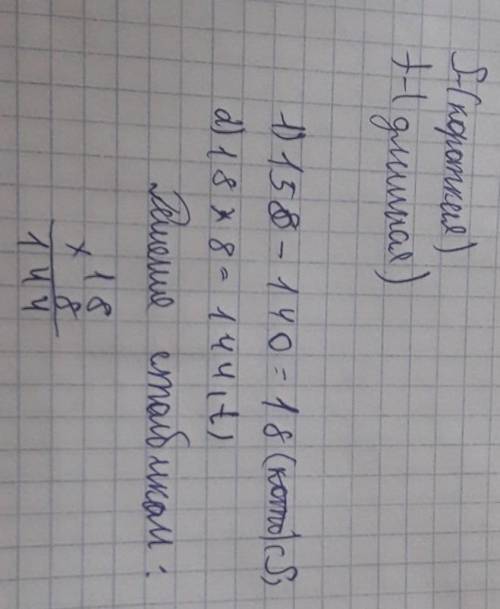 S-(короткая)
t-(длинная)
1) 158 - 140 = 18 (
2) 18 × 8 = 144(t)
Решение столбиком:
18
× 8
144